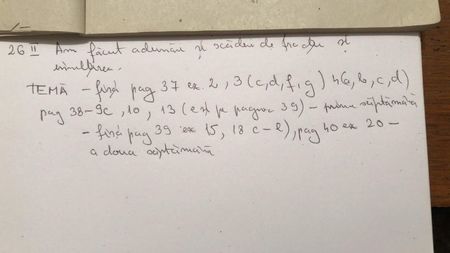 26 II Am făcut adunări și scăderi de fracții și
înmulțirea.
TEMĂ - fișă pag 37 ex. 2, 3 (c, d, f, g) 4(a, b, c, d)
pag 38 - 9c, 10, 13 (e și pe pagina 39) - prima săptămână
- fișă pag 39 ex 15, 18 c-e), pag 40 ex 20 -
a doua săptămână